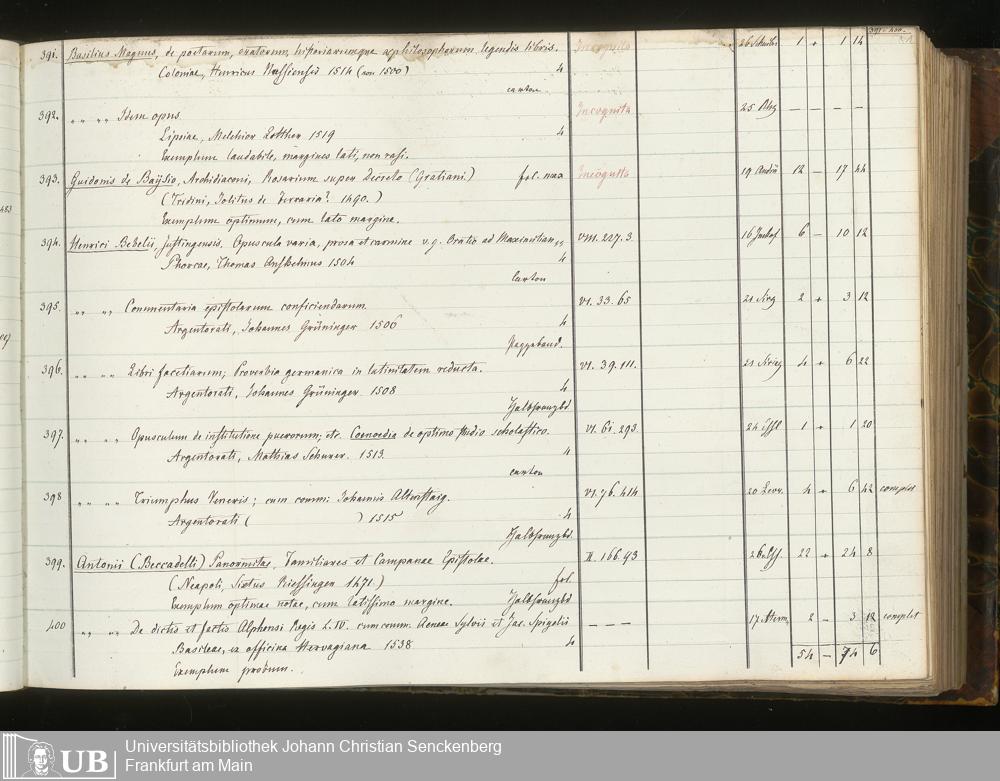 391-400.
391. Basilius Magnus, de poetarum, oratorum, historicorumque ac philosophorum legendis libris. Incognito 1 1 14
Coloniae, Henricus Nussiensis 1514 (non 1500) 4
carton
392. " " Idem opus. Incognita 25 — — — —
Lipsiae, Melchior Lotther 1519 4
Exemplum laudabile, margines lati, non rasi.
393. Guidonis de Baysio, Archidiaconi, Rosarium super Decreto (Gratiani) fol. max Incognito 19 12 — 17 44
(Tridini, Jolitus de Ferrariis? 1490.)
Exemplum optimum, cum lato margine.
394. Henrici Bebelii, Justingensis. Opuscula varia, prosa et carmine v.g. Oratio ad Maximilian. VIII. 227. 3. 16 6 — 10 12
Phorcae, Thomas Anshelmus 1504 4
Carton
395. " " Commentaria epistolarum conficiendarum VI. 33. 65 21 2 3 12
Argentorati, Johannes Grüninger 1506 4
Pappeband.
396. " " Libri facetiarum; Proverbia germanica in latinitatem reducta. VI. 39. 111. 21 4 6 22
Argentorati, Johannes Grüninger 1508 4
Halbfranzbd
397. " " Opusculum de institutione puerorum; etc. Comoedia de optimo studio scholastico. VI. 61. 293. 24 1 1 20
Argentorati, Mathias Schurer. 1513. 4
carton
398 " " Triumphus Veneris; cum comm: Johannis Altenstaig. VI. 76. 414 20 4 6 42 complet
Argentorati ( ) 1515 4
Halbfranzbd
399. Antonii (Beccadelli) Panormitae, Familiares et Campanae Epistolae. II. 166. 93 26 22 24 8
(Neapoli, Sixtus Riessinger 1471.) fol.
Exemplum optimae notae, cum latissimo margine. Halbfranzbd
400 " " De dictis et factis Alphonsi Regis L. IV. cum comm. Aeneae Sylvii et Jac. Spigelii — — — 17 2 — 3 12 complet
Basileae, ex officina Hervagiana 1538 4
Exemplum probum. 54 — 74 6
UB Universitätsbibliothek Johann Christian Senckenberg
Frankfurt am Main